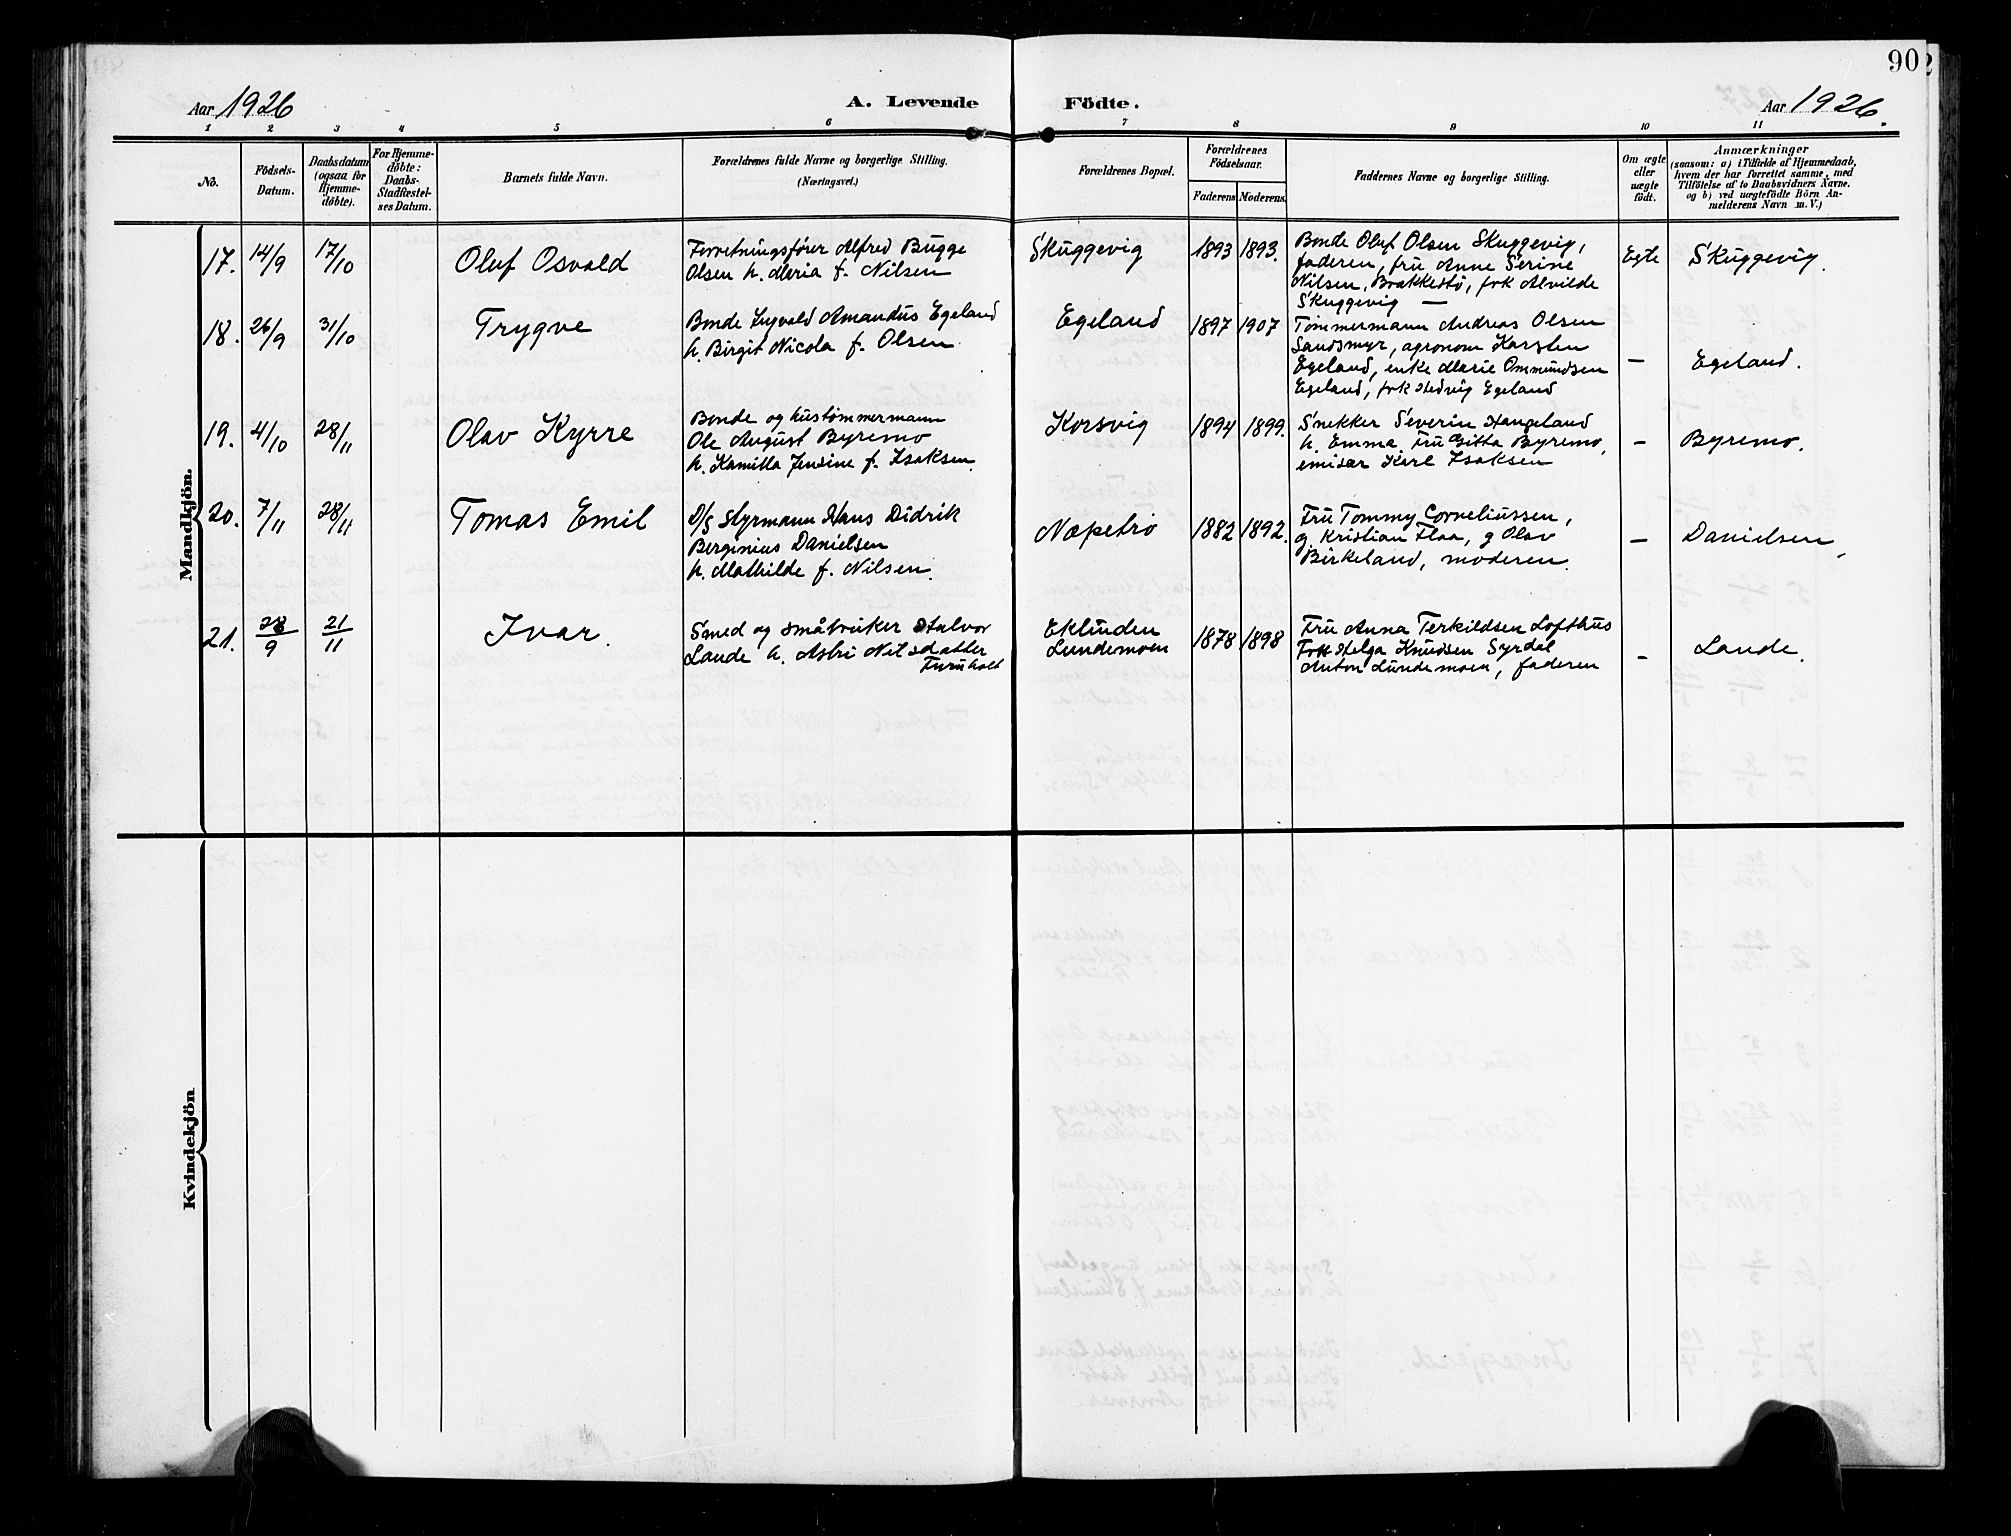 90
Aar 1926
A. Levende Födte.
Aar 1926.
1 2 3 4 5 6 7 8 9 10 11
No.
Födsels-
Datum.
Daabsdatum
(ogsaa for
Hjemme-
döbte).
For Hjemme-
döbte:
Daabs-
Stadfæstel-
ses Datum.
Barnets fulde Navn.
Forældrenes fulde Navne og borgerlige Stilling.
(Næringsvei.)
Forældrenes Bopæl.
Forældrenes
Födselsaar.
Faderens
Moderens.
Faddernes Navne og borgerlige Stilling.
Om ægte
eller
uægte
födt.
Anmærkninger
(saasom: a) i Tilfælde af Hjemmedaab,
hvem der har forrettet samme, med
Tilföielse af to Daabsvidners Navne.
og b) ved uægtefödte Börn An-
melderens Navn m. V.)
Mandkjön.
17.
14/9
17/10
Oluf Osvald
Forretningsfører Alfred Bugge
Olsen h. Maria f. Nilsen
Skuggevig
1893
1893.
Bonde Oluf Olsen Skuggevig,
faderen, fru Anne Serine
Nilsen, Brakkestø, frk Alvilde
Skuggevig —
Egte
Skuggevig.
18.
26/9
31/10
Trygve
Bonde Sigvald Amandus Egeland
h. Birgit Nicola f. Olsen.
Egeland
1897
1907
Tømmermann Andreas Olsen
Sandsmyr, agronom Karsten
Egeland, enke Marie Ommundsen
Egeland, frk Hedvig Egeland
—
Egeland.
19.
4/10
28/11
Olav Kyrre
Bonde og hustømmermann
Ole August Byremo
h. Kamilla Jensine f. Isaksen.
Korsvig
1894
1899.
Snekker Severin Haugeland
h. Emma, Fru Gitta Byremo,
emisær Karl Isaksen
—
Byremo.
20.
7/11
28/11
Tomas Emil
D/S styrmann Hans Didrik
Bergenius Danielsen
h. Mathilde f. Nilsen.
Næpetrø
1882
1892.
Fru Tommy Corneliussen,
g Kristian Flaa, g Olav
Birkeland, moderen.
—
Danielsen,
21.
28/9
21/11
Ivar.
Smed og småbruker Halvor
Lande h. Astri Nilsdatter
Furuholt
Eklunden
Lundemoen
1878
1898
Fru Anna Terkildsen Lofthus
Frk Helga Knudsen Syrdal
Anton Lundemoen, faderen
—
Lande.
Kvindekjön